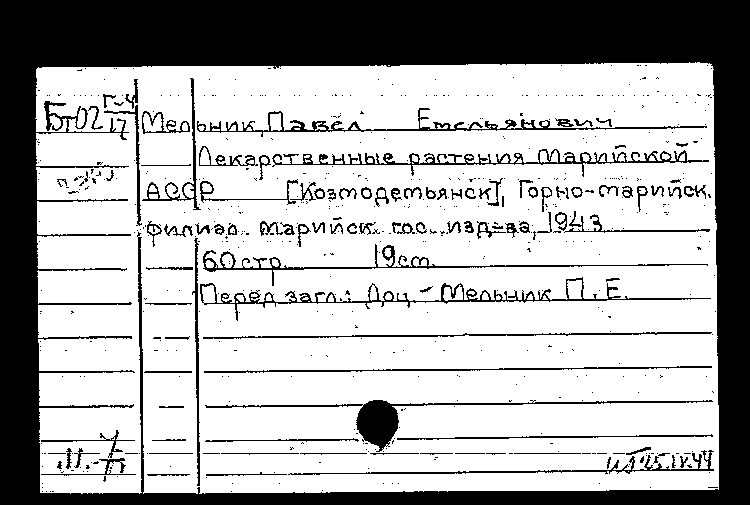 Бт02 Г-4/17
Мельник, Павел Емельянович
Лекарственные растения Марийской
АССР [Козмодемьянск], Горно-марийск.
филиал Марийск. гос. изд-ва, 1943
60 стр. 19 см.
Перед загл.: Доц. Мельник П. Е.
25.IV.44